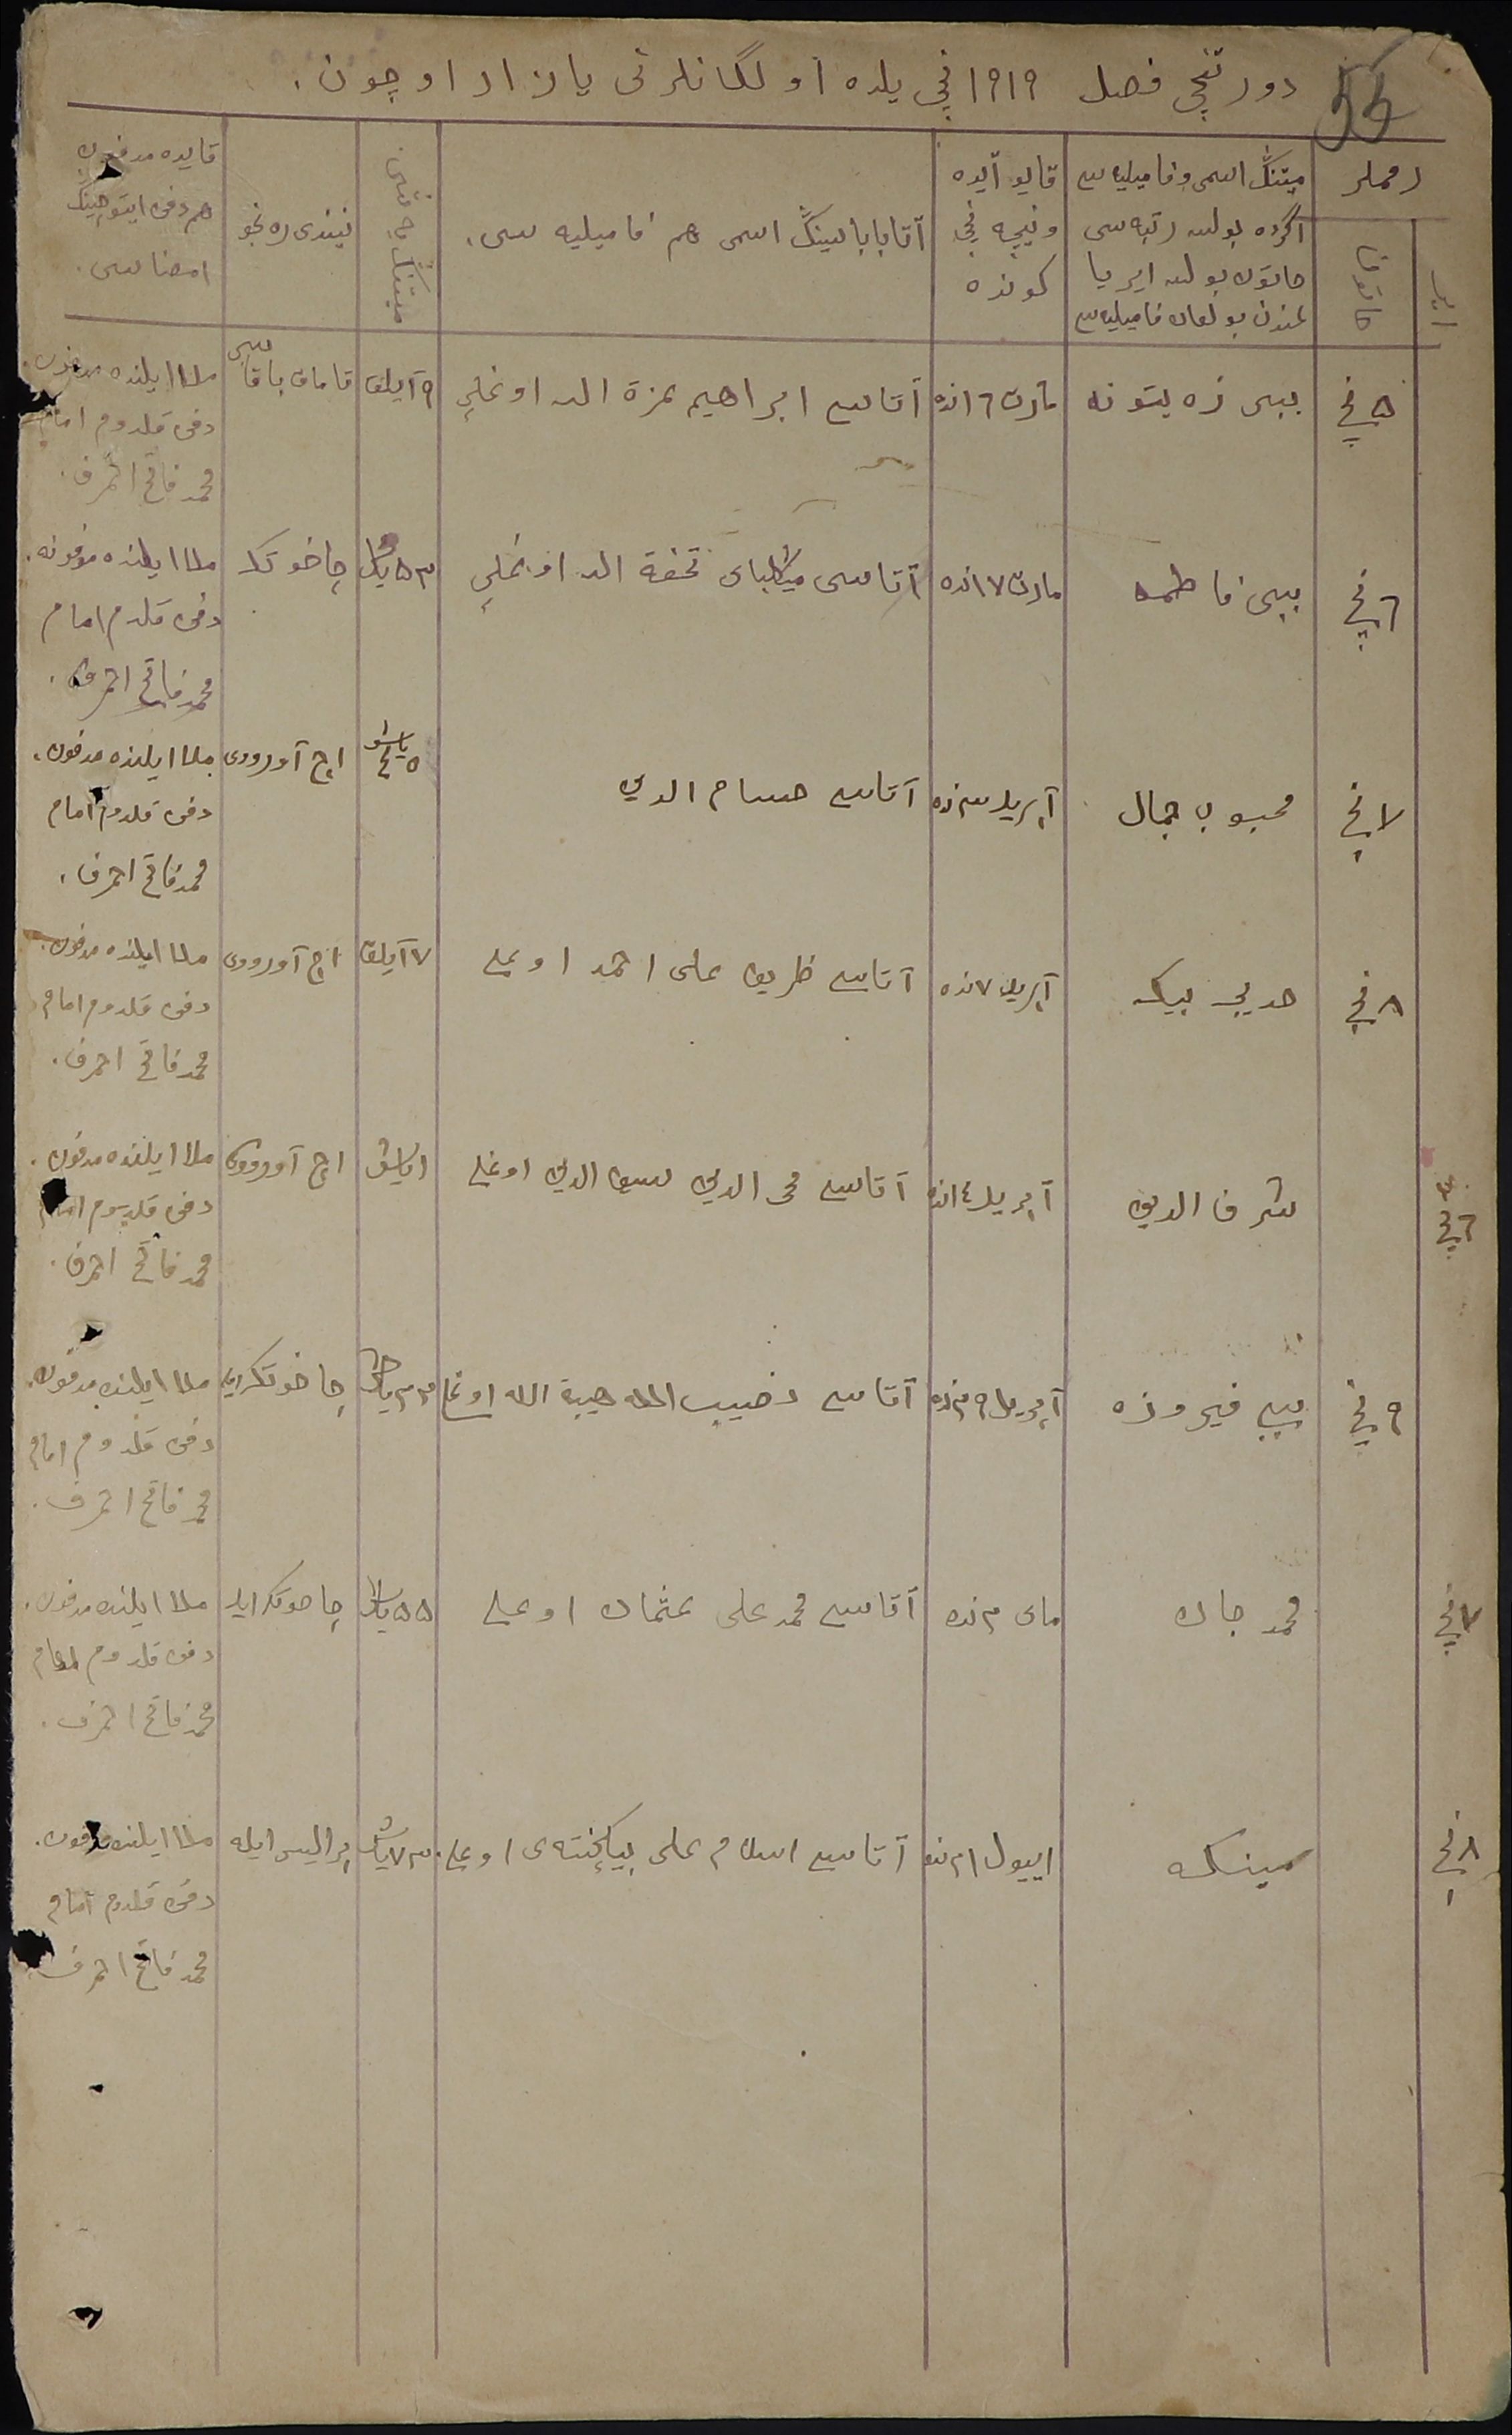 55
دورتنچی فصل ۱۹۱۹ نچی یلده اولگانلرنی یازار اوچون.
رقملر
ایر
خاتون
میتنڭ اسمی وفامیلیه سی
اگرده بولسه رتبه سی
خاتون بولسه ایر یا
بولغان فامیلیه سی
قایو آیده
ونیچه نچی
کونده
آتا باباسینڭ اسمی هم فامیلیه سی.
میتنڭ
نیندی رنجو
قایده مدفون
هم دفن ایتوچینڭ
امضاسی.
۵ نچی
بیبی زه یتونه
مارت ۱٦ نده
آتاسی ابراهیم حمزة الله اوغلی
۹ آیلق
تاماق باقاسی
ملا ایلنده مدفون.
دفن قلدوم امام
محمد فاتح اشرف.
٦ نچی
بیبی فاطمه
مارت ۱۷ نده
آتاسی میڭلبای تحفة الله اوغلی
۵۳ یاش
چاخوتکا
ملا ایلنده مدفونه.
دفن قلدم امام
محمد فاتح اشرف.
۷ نچی
محبوب جمال
آپریل ۳ نده
آتاسی حسام الدین
اچ آوروی
ملا ایلنده مدفون.
دفن قلدوم امام
محمد فاتح اشرف.
۸ نچی
آپریل ۷ نده
آتاسی ظریف علی احمد اوغلی
۷ آیلق
اچ آوروی
ملا ایلنده مدفون.
دفن قلدوم امام
محمد فاتح اشرف.
٦ نچی
شرف الدین
آپریل ۱٤ نده
آتاسی محی الدین سیف الدین اوغلی
۱ یاش
اچ آوروی
ملا ایلنده مدفون.
دفن قلدوم امام
محمد فاتح اشرف.
۹ نچی
بیبی فیروزه
آپریل ۲۹ نده
آتاسی حبیب الله هیبة الله اوغلی
۲۳ یاش
چاخوتکه ایله
ملا ایلنده مدفون.
دفن قلدوم امام
محمد فاتح اشرف.
۷ نچی
محمد جان
مای ۲ نده
آتاسی محمد علی عثمان اوغلی
۵۵ یاش
چاخوتکه ایله
ملا ایلنده مدفون.
دفن قلدوم امام
محمد فاتح اشرف.
۸ نچی
اییول ۲۱ نده
آتاسی اسلام علی اوغلی
۷۳ یاش
پرالیس ایله
ملا ایلنده مدفون.
دفن قلدوم امام
محمد فاتح اشرف